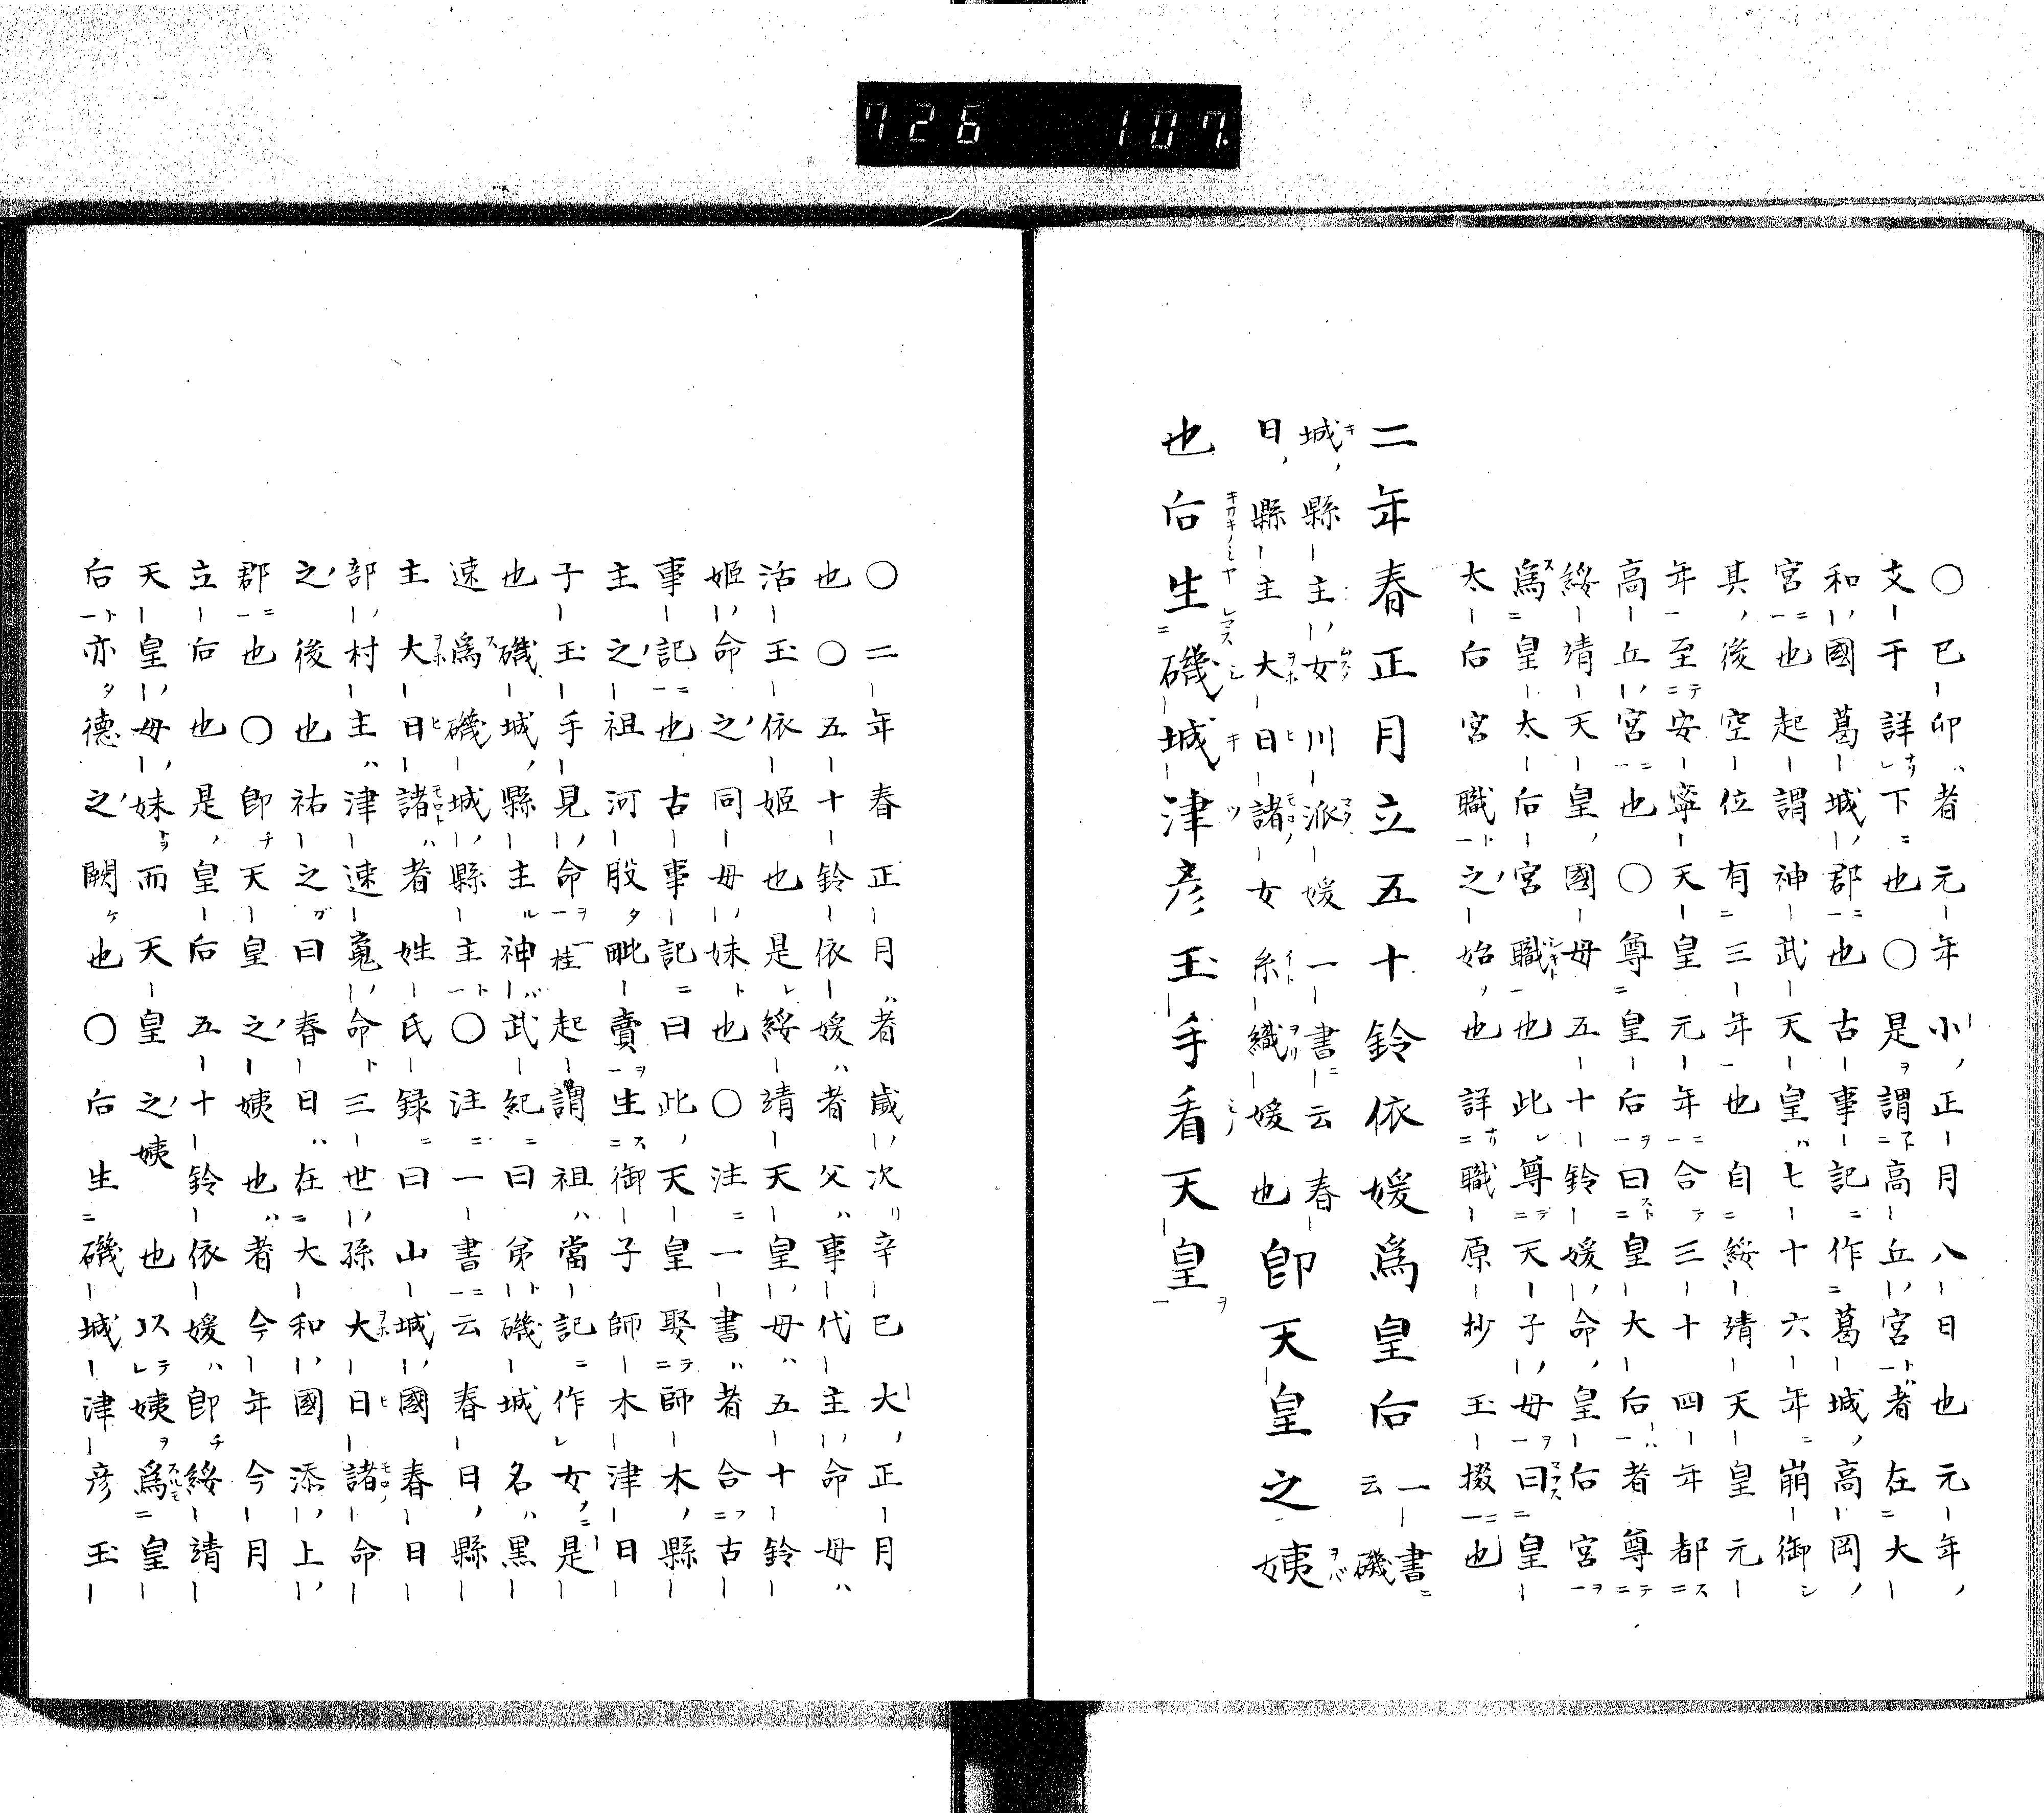 726 107.
〇巳卯者元年小正月八日也元年
支干詳下也〇是謂高丘宮者在大
和國葛城郡也古事記作葛城高岡
宮也起謂神武天皇七十六年崩御
其後空位有三年也自綏靖天皇元
年至安寧天皇元年合三十四年都
高丘宮也〇尊皇后曰皇大后者尊
綏靖天皇國母五十鈴媛命皇后宮
爲皇太后宮職也此尊天子母曰皇
太后宮職之始也詳職原抄玉掇也
二年春正月立五十鈴依媛爲皇后一書云磯
城縣主女川派媛一書云春
日縣主大日諸女糸織媛也即天皇之姨
也后生磯城津彦玉手看天皇
〇二年春正月者歲次辛巳大正月
也〇五十鈴依媛者父事代主命母
活玉依姬也是綏靖天皇母五十鈴
姬命之同母妹也〇注一書者合古
事記也古事記曰此天皇娶師木縣
主之祖河股毗賣生御子師木津日
子玉手見命一桂起謂祖當記作女是
也磯城縣主神武紀曰弟磯城名黑
速爲磯城縣主〇注一書云春日縣
主大日諸者姓氏録曰山城國春日
部村主津速魂命三世孫大日諸命
之後也祐之曰春日在大和國添上
郡也〇即天皇之姨也者今年今月
立后也是皇后五十鈴依媛即綏靖
天皇母妹而天皇之姨也以姨爲皇
后亦德之闕也〇后生磯城津彦玉